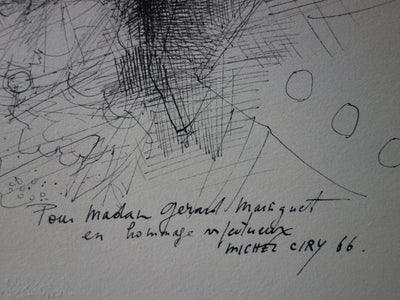 Pour Madam Gerard Mariquet
en hommage respectueux
MICHEL CIRY 66.